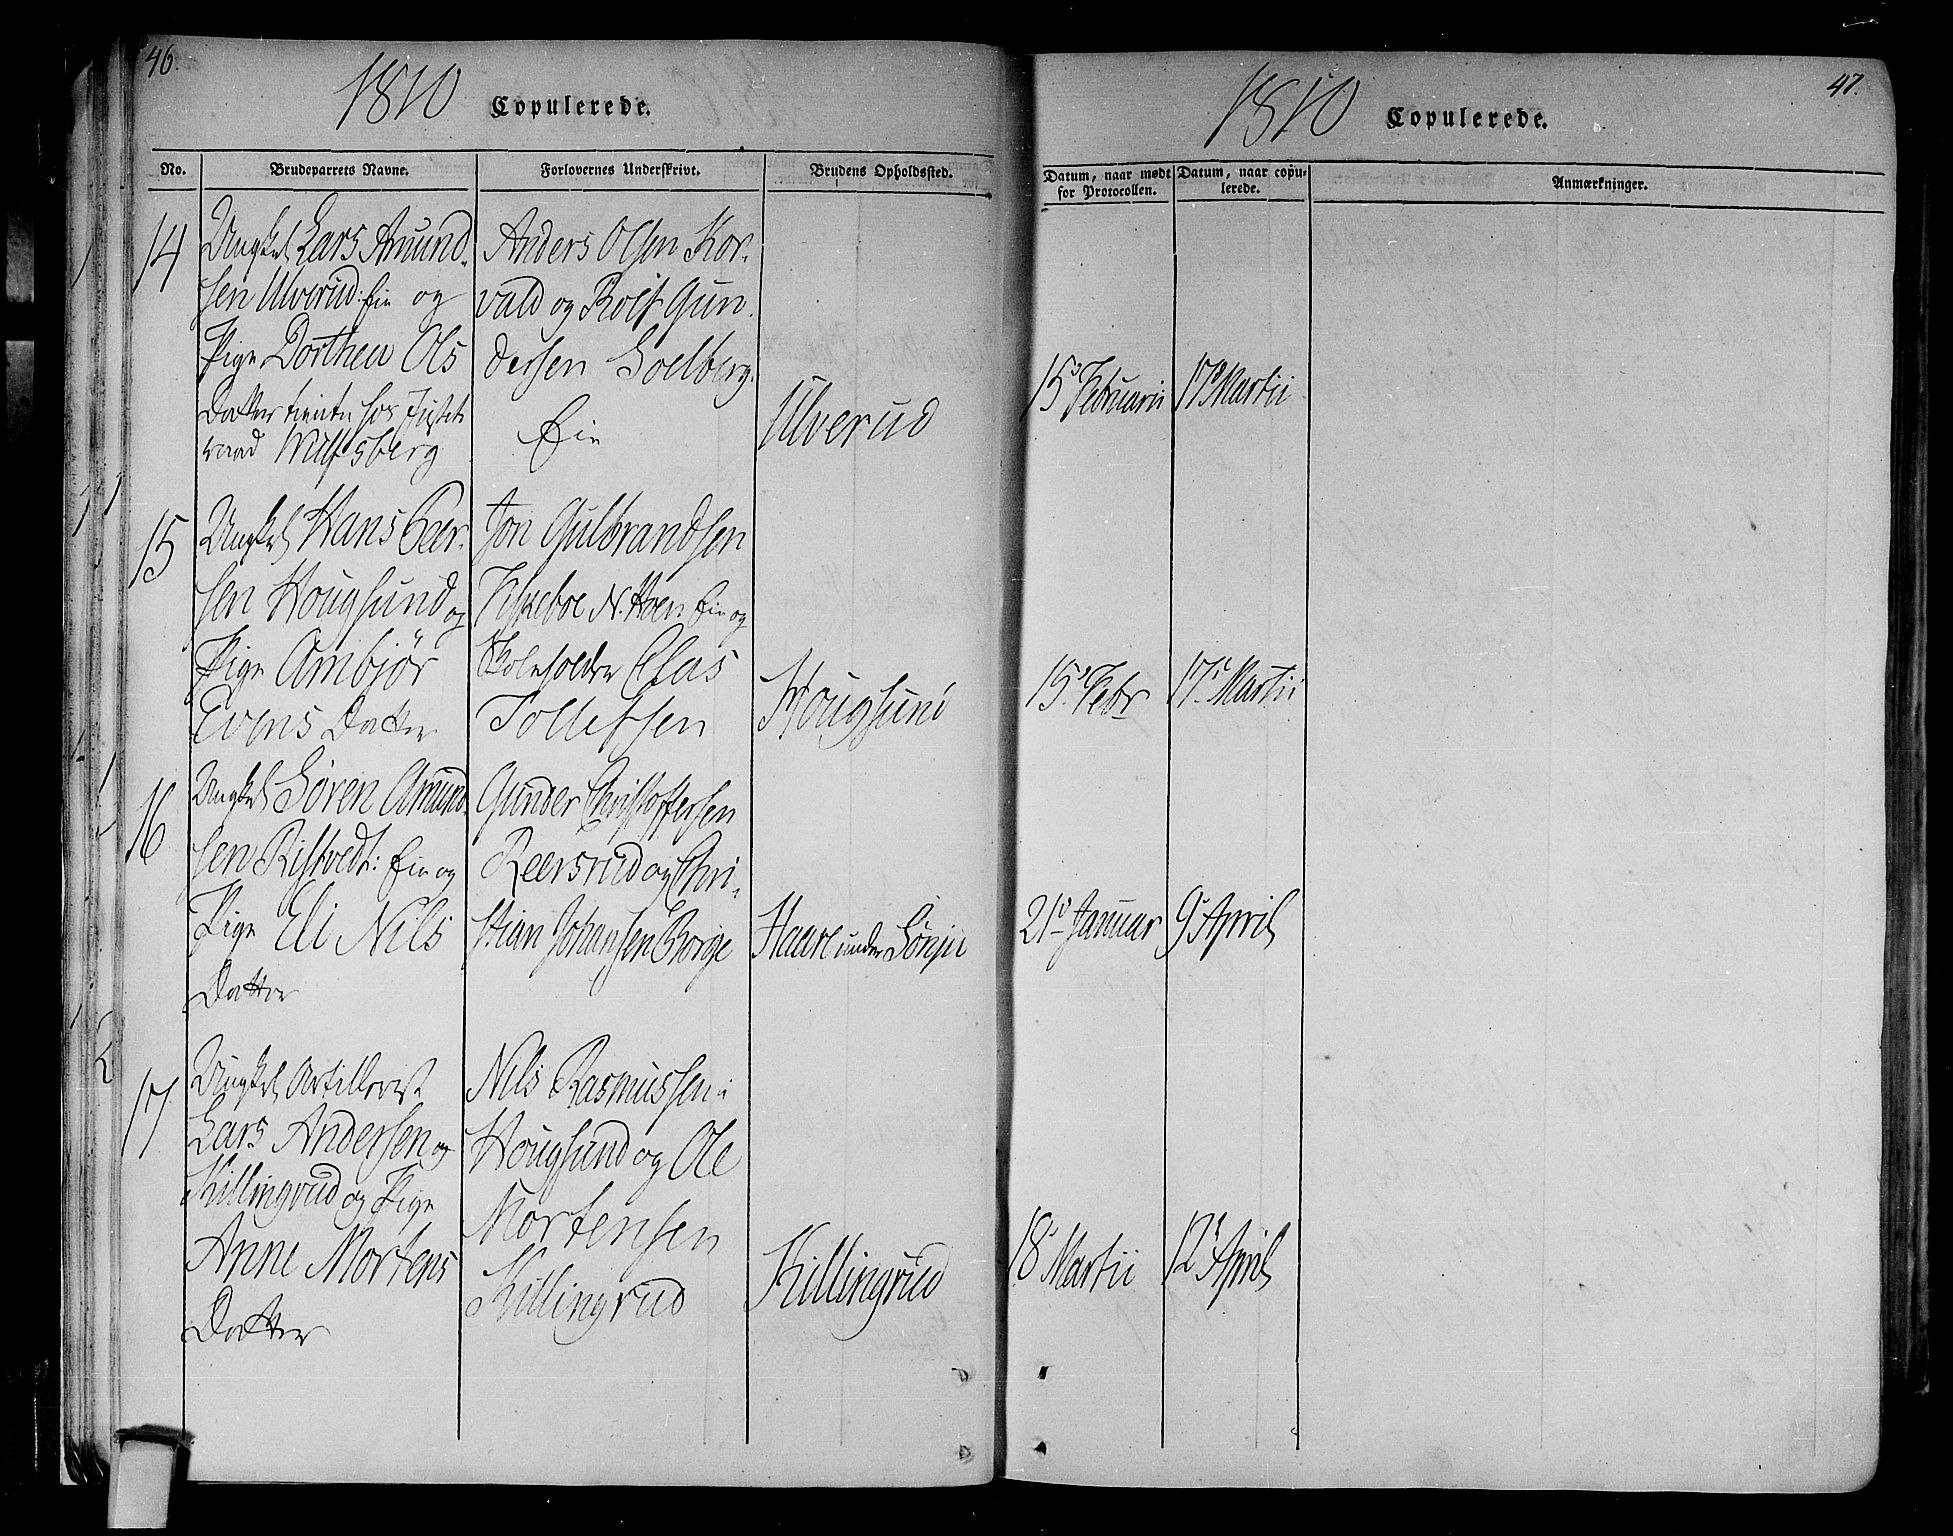 46.
1810 Copulerede.
No. Brudeparrets Navne. Forlovernes Underskrivt. Brudens Opholdssted.
14
Ungkel Lars Amund-
sen Ulverud: Eie og
Pige Dorthea Ols
Datter tiente hos Justits
raad
Anders Olsen Kor-
vald og Rolf Gun-
dersen Soelberg
Eie
Ulverud
15
Ungkel Hans Peer-
sen Hougsund og
Pige Ambjør
Evens Datter
Jon Gulbrandsen
N. Hoen Eie og
Skoleholder Clas
Tollefsen
Hougsund
16
Ungkel Søren Amund-
sen Ristvedt: Eie og
Pige Eli Nils
Datter
Gunder Christoffersen
Reersrud og Chri-
stian Johansen Borge
Haare under Sønju
17
Ungkel Artillerist
Lars Andersen og
Killingrud og Pige
Anne Mortens
Datter
Nils Rasmussen
Hougsund og Ole
Mortensen
Killingrud
Killingrud
2
47.
1810 Copulerede.
Datum, naar mødt for Protocollen. Datum, naar copu-
lerede. Anmærkninger.
15 Februarii 17 Martii
15 Febr 17 Martii
21 Januar 9 April
18 Martii 12 April